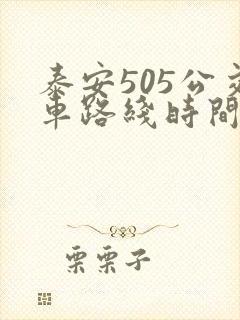 泰安505公交
車路綫時間
栗栗子